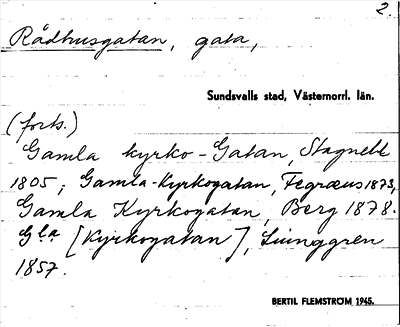 2.
Rådhusgatan, gata,
Sundsvalls stad, Västernorrl. län.
(forts.)
Gamla kyrko-Gatan, Stagnell
1805; Gamla-Kyrkogatan, Tegræus 1873,
Gamla Kyrkogatan, Berg 1878.
Gla [Kyrkogatan], Ljunggren
1857.
BERTIL FLEMSTRÖM 1945.